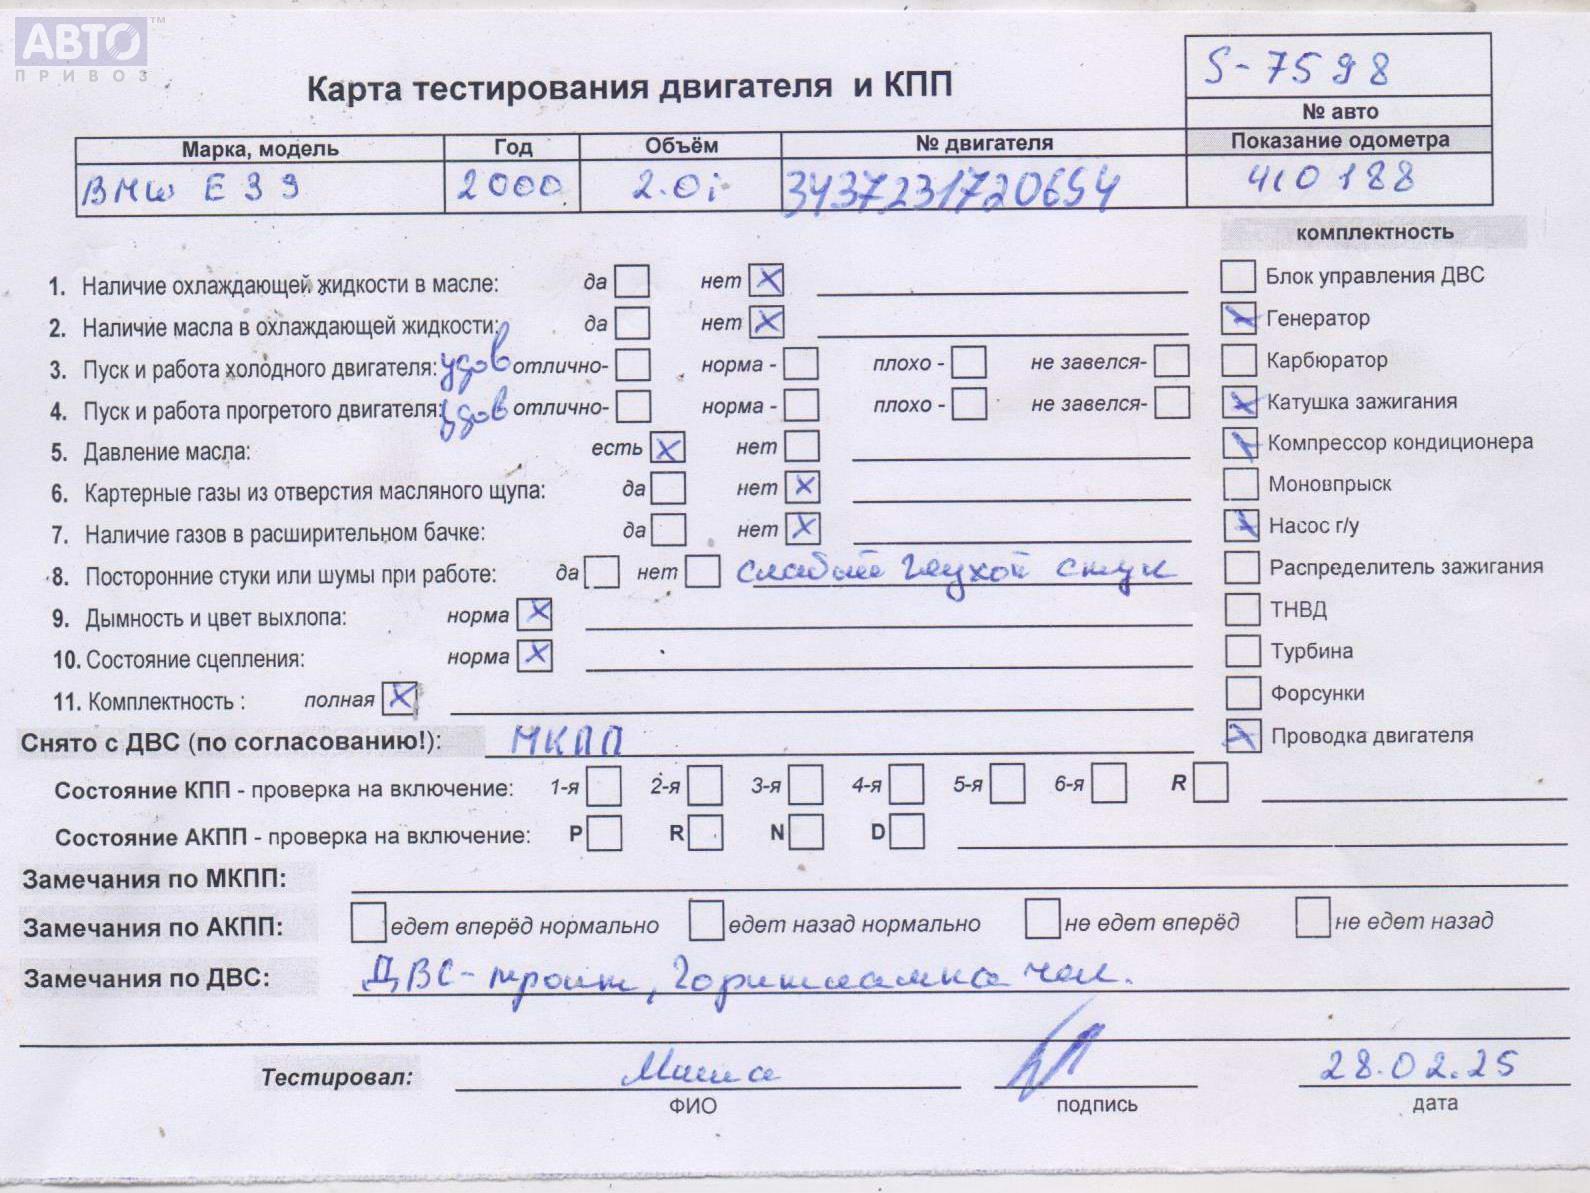 АВТО™
ПРИВОЗ
Карта тестирования двигателя и КПП
S-7598
№ авто
Марка, модель Год Объём № двигателя Показание одометра
BMW E39 2000 2.0i 3437231720654 410188
комплектность
1. Наличие охлаждающей жидкости в масле: да нет X
2. Наличие масла в охлаждающей жидкости: да нет X
3. Пуск и работа холодного двигателя: удов отлично- норма - плохо - не завелся-
4. Пуск и работа прогретого двигателя: удов отлично- норма - плохо - не завелся-
5. Давление масла: есть X нет
6. Картерные газы из отверстия масляного щупа: да нет X
7. Наличие газов в расширительном бачке: да нет X
8. Посторонние стуки или шумы при работе: да нет слабый глухой стук
9. Дымность и цвет выхлопа: норма X
10. Состояние сцепления: норма X
11. Комплектность : полная X
Блок управления ДВС
X Генератор
Карбюратор
X Катушка зажигания
X Компрессор кондиционера
Моновпрыск
X Насос г/у
Распределитель зажигания
ТНВД
Турбина
Форсунки
X Проводка двигателя
Снято с ДВС (по согласованию!): МКПП
Состояние КПП - проверка на включение: 1-я 2-я 3-я 4-я 5-я 6-я R
Состояние АКПП - проверка на включение: P R N D
Замечания по МКПП:
Замечания по АКПП: едет вперёд нормально едет назад нормально не едет вперёд не едет назад
Замечания по ДВС: ДВС-троит, Горит лампа чек.
Тестировал: 28.02.25
ФИО подпись дата